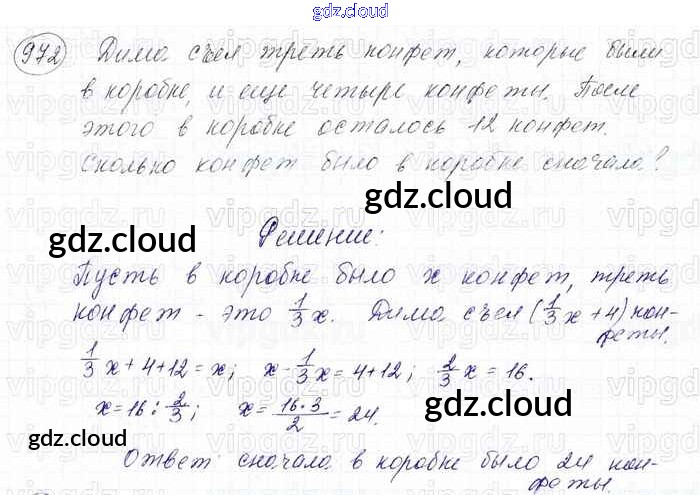 gdz.cloud
972 Дима съел треть конфет, которые были
в коробке, и еще четыре конфеты. После
этого в коробке осталось 12 конфет.
Сколько конфет было в коробке сначала?
gdz.cloud
gdz.cloud
Решение:
Пусть в коробке было x конфет, треть
конфет - это 1/3 x. Дима съел (1/3 x + 4) кон-
феты.
1/3 x + 4 + 12 = x; x - 1/3 x = 4 + 12; 2/3 x = 16.
x = 16 : 2/3; x = 16·3/2 = 24.
gdz.cloud
gdz.cloud
Ответ сначала в коробке было 24 кон-
феты